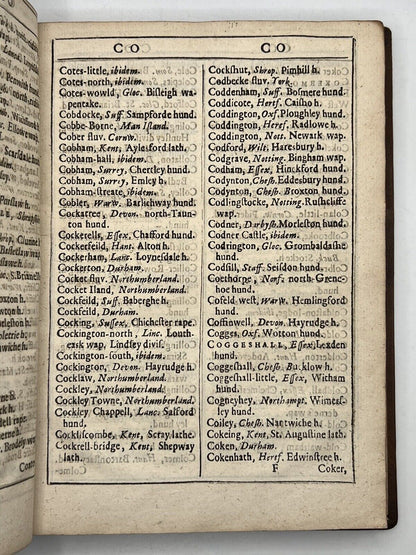 CO
CO
Cotes-little, ibidem.
Cotes-north, ibidem.
Cotes-wowld, Gloc. Bisleigh wa-
pentake.
Cobdocke, Suff. Sampforde hund.
Cobbe-Borne, Man Island.
Cober fluv. Corw.
Cobham, Kent, Aylesford lath.
Cobham-hall, ibidem.
Cobham, Surrey, Chertley hund.
Cobham, Surrey, Emley h.
Cobham-streate, ibidem.
Cobler, Warw. Barlichway hund.
Cockatree, Devon. north-Taun-
ton hund.
Cockerells, Essex, Chafford hund.
Cockerfeild, Hant. Alton h.
Cockerham, Lanc. Loynesdale h.
Cockerton, Durham.
Cocket fluv. Northumberland.
Cocket Iland, Northumberland.
Cockfeild, Suff. Baberghe h.
Cockfeild, Durham.
Cocking, Sussex, Chichester rape.
Cockington-north, Linc. Louth-
eask wap. Lindsey divis.
Cockington-south, ibidem.
Cockington, Devon, Hayrudge h.
Cocklaw, Northumberland.
Cockley, Northumberland.
Cockley Towne, Northumberland.
Cockley Chappell, Lanc. Salford
hund.
Cocklifcombe, Kent, Scray lathe.
Cockrell-bridge, Kent, Shepway
lath.
Cockshut, Shrop. Pimhill h.
Codbecke fluv. York.
Coddenham, Suff. Bosmere hund.
Coddicote, Heref. Caisho h.
Coddington, Oxf. Ploughley hund.
Coddington, Heref. Radlowe h.
Coddington, Nott. Newark wap.
Codford, Wilt. Haresbury h.
Codgrave, Notting. Bingham wap.
Codham, Essex, Hinckford hund.
Codynton, Chesh. Eddesbury hund.
Codynton, Chesh. Broxton hund.
Codlingstocke, Notting. Rusheliffe
wap.
Codner, Darbysh. Morleston hund.
Codner Castle, ibidem.
Codrington, Gloc. Grombaldashe
hund.
Codsill, Staff. Seisdon hund.
Coethorpe, Norf. north-Green-
hoe hund.
Cofeld-west, Warw. Hemlingford
hund.
Coffinwell, Devon. Hayrudge h.
Cogges, Oxf. Wotton hund.
COGGESHALL, Essex, Lexden
hund.
Coggeshall, Chesh. Bucklow h.
Coggeshall-little, Essex, Witham
hund.
Cogneyhey, Northampt. Wimers-
ley hund.
Coiley, Chesh. Nantwiche h.
Cokeing, Kent, St. Augustine lath.
Coken, Durham.
Cokenhath, Heref. Edwinstree h.
F
Coker,